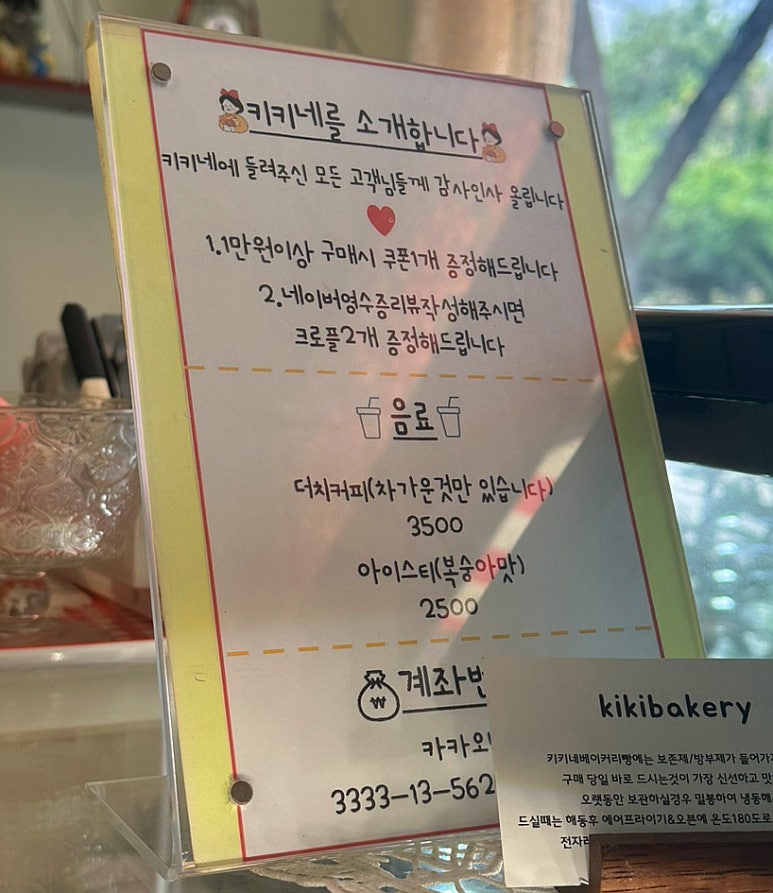 키키네를 소개합니다
키키네에 들려주신 모든 고객님들께 감사인사 올립니다
1.1만원이상 구매시 쿠폰1개 증정해드립니다
2.네이버영수증리뷰작성해주시면
크로플2개 증정해드립니다
음료
더치커피(차가운것만 있습니다)
3500
아이스티(복숭아맛)
2500
₩ 계좌
카카오
3333-13-562
kikibakery
키키네베이커리빵에는 보존제/방부제가 들어가
구매 당일 바로 드시는것이 가장 신선하고
오랫동안 보관하실경우 밀봉하여 냉동
드실때는 해동후 에어프라이기&오븐에 온도180도로